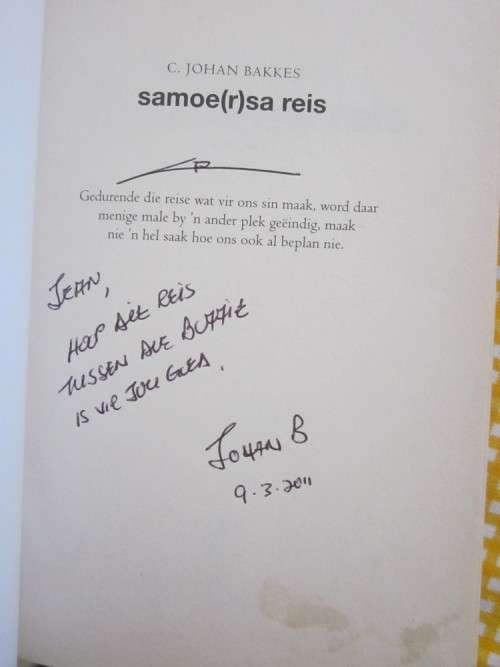 C. JOHAN BAKKES
samoe(r)sa reis
Gedurende die reise wat vir ons sin maak, word daar
menige male by 'n ander plek geëindig, maak
nie 'n hel saak hoe ons ook al beplan nie.
JEAN,
HOOP DIÉ REIS
TUSSEN DIE BUFFIE
IS VIR JOU GOED.
JOHAN B
9.3.2011